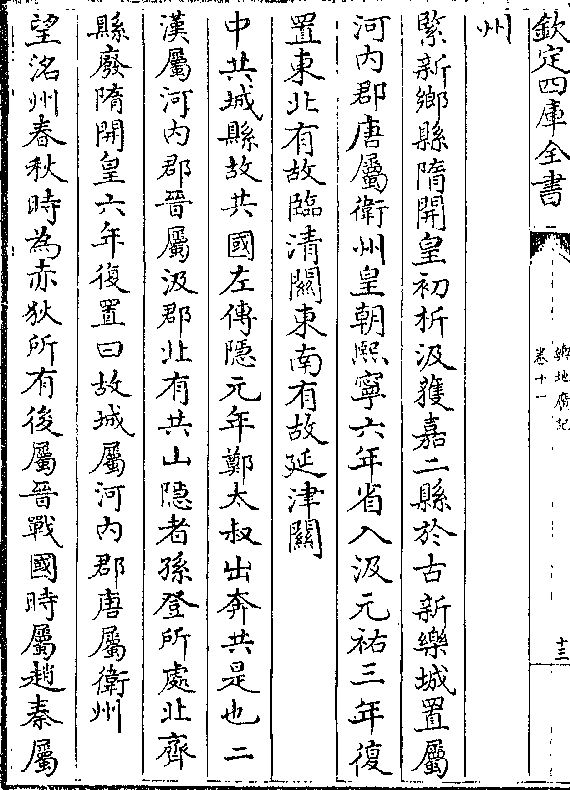 欽定四庫全書
輿地廣記
卷十一
十三
州
緊新鄉縣隋開皇初析汲獲嘉二縣於古新樂城置屬
河内郡唐屬衛州皇朝熙寧六年省入汲元祐三年復
置東北有故臨清關東南有故延津關
中共城縣故共國左傳隠元年鄭太叔出奔共是也二
漢屬河内郡晉屬汲郡北有共山隠者孫登所處北齊
縣廢隋開皇六年復置曰故城屬河内郡唐屬衛州
望洺州春秋時為赤狄所有後屬晉戰國時屬趙秦屬